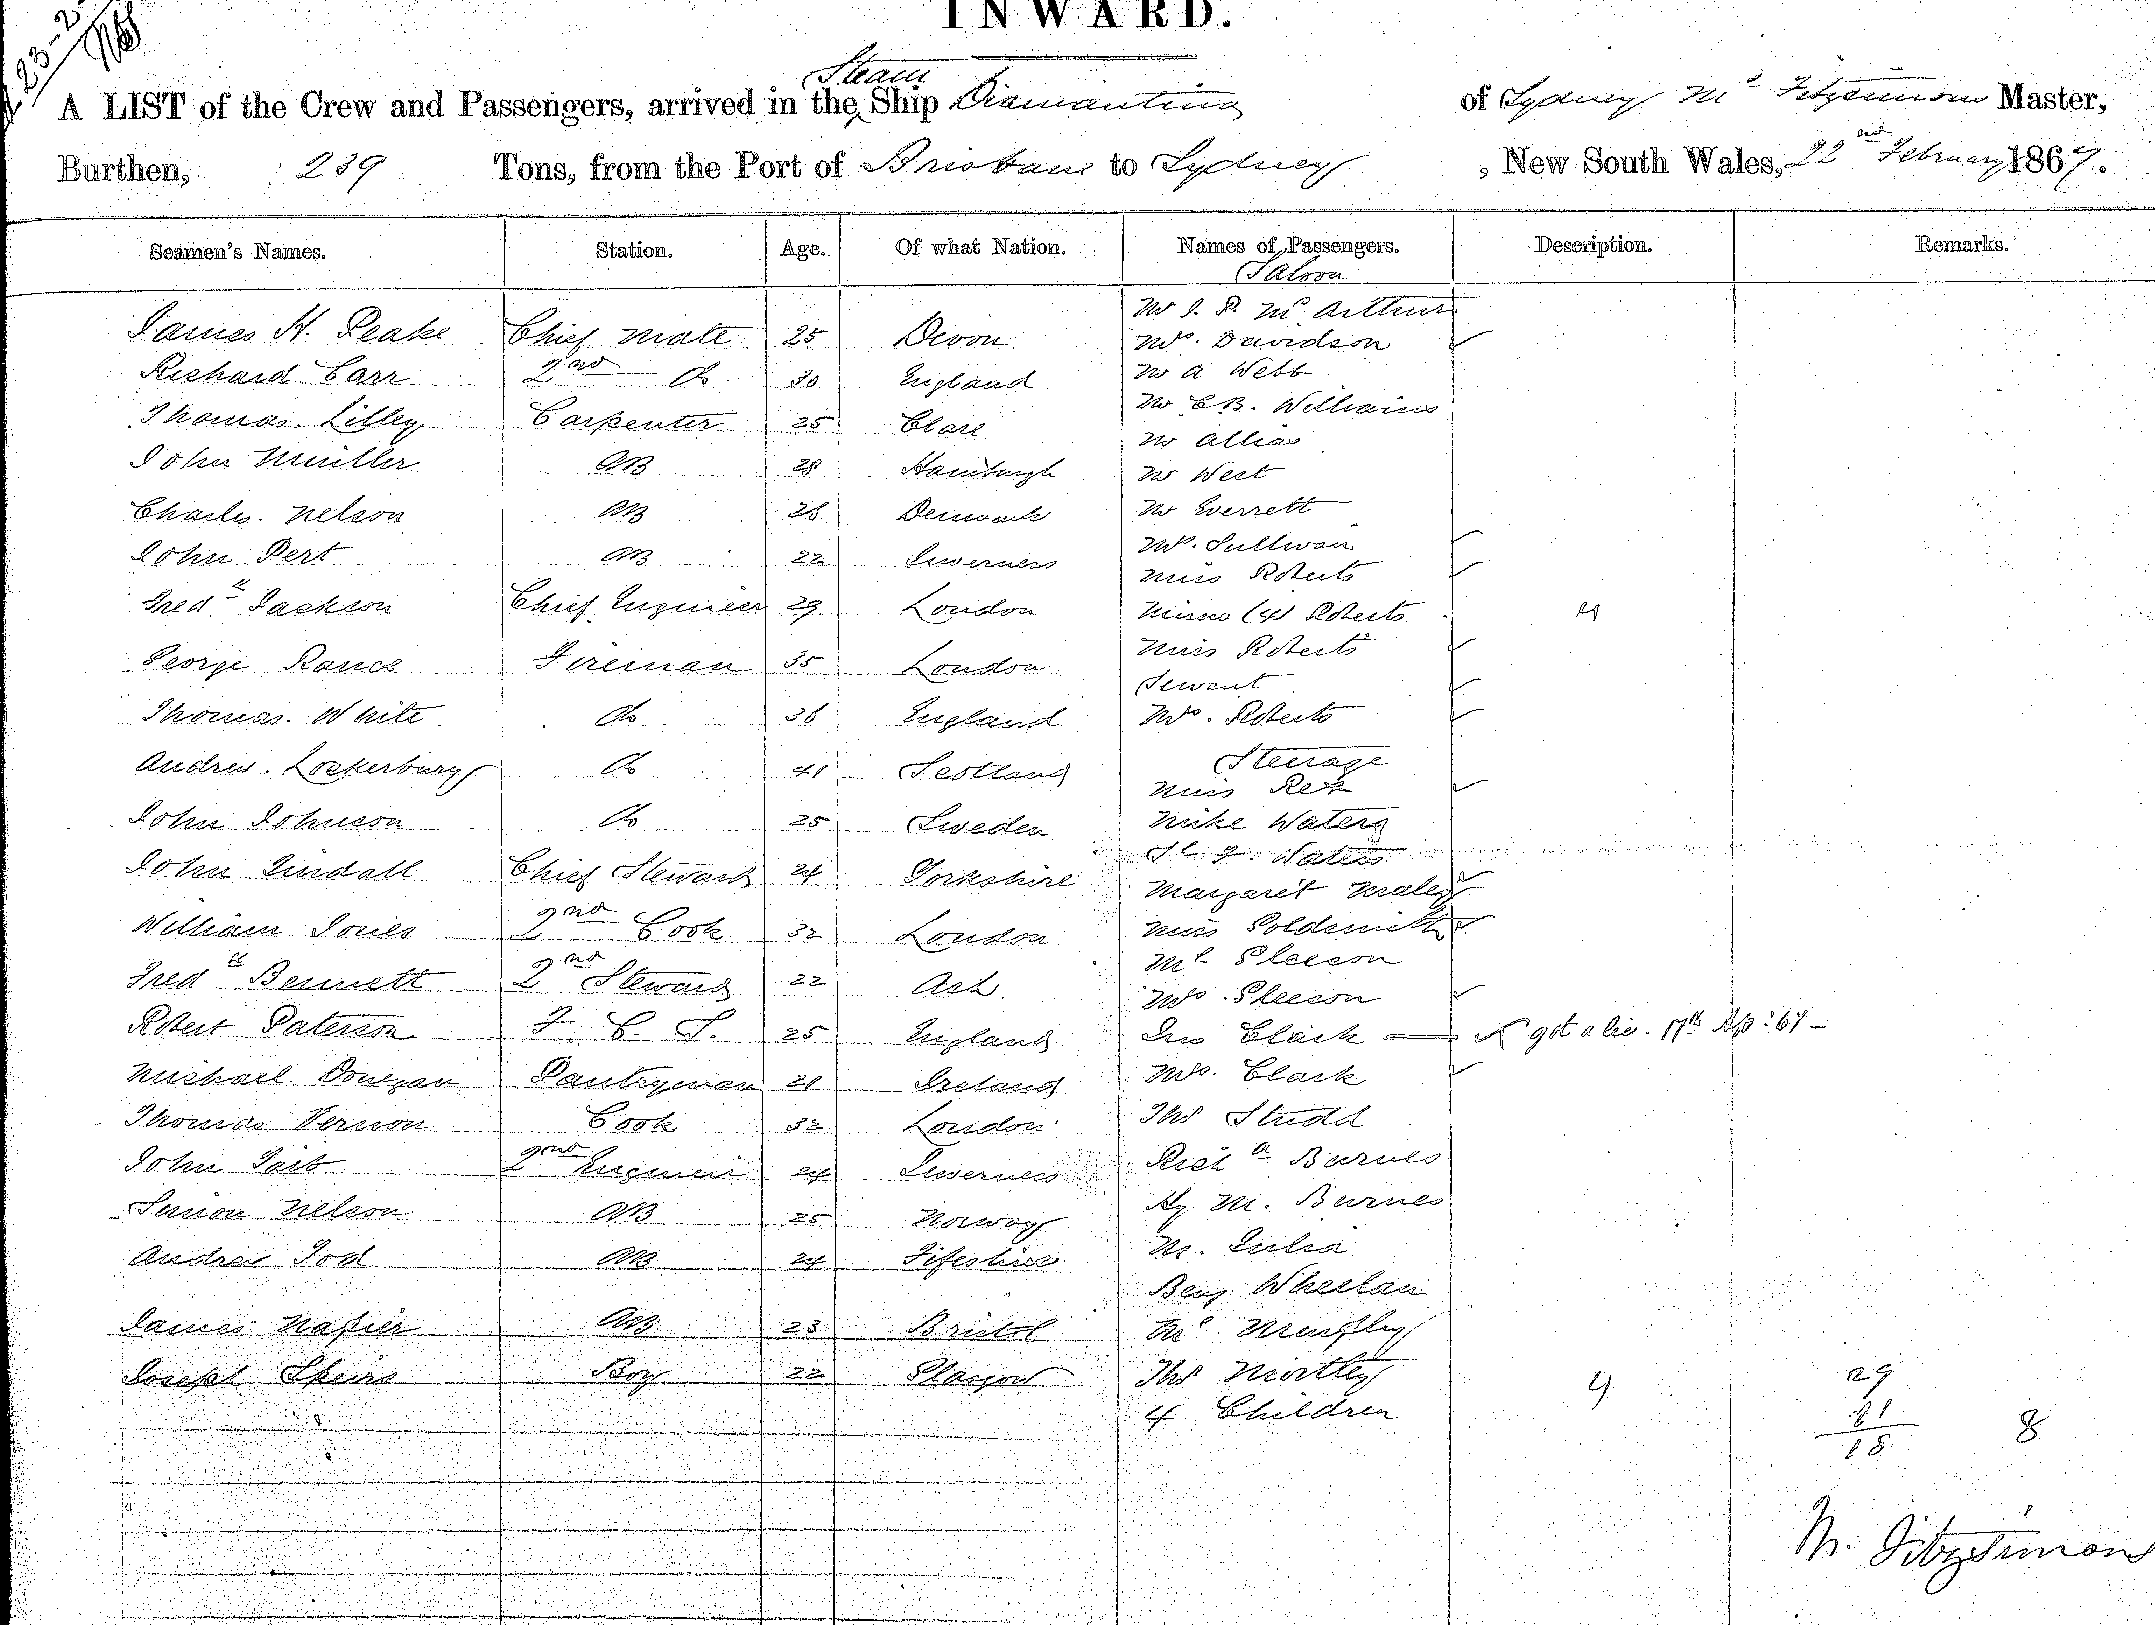 INWARD.
Steam
A LIST of the Crew and Passengers, arrived in the Ship Diamantina of Sydney Master,
Burthen, 239 Tons, from the Port of Brisbane to Sydney , New South Wales, 22nd February 1867.
Seamen's Names. Station. Age. Of what Nation. Names of Passengers. Description. Remarks.
Saloon
Mr J. P. McArthur
James H. Peake Chief Mate 25 Devon Mrs. Davidson
Richard Carr 2nd Do 30 England Mr A Webb
Thomas Lilley Carpenter 25 Clare Mr C B. Williams
John Muller AB 28 Hamburgh Mr
Mr West
Charles Nelson AB 26 Denmark Mr Everrett
John Pert AB 22 Inverness Mrs. Sullivan
Miss Roberts
Fredk Jackson Chief Engineer 29 London Misses (4) Roberts
George Fireman 35 London Miss Roberts
Servant
Thomas White Do 36 England Mrs. Roberts
Steerage
Andrew Lockerbury Do 41 Scotland Miss
John Johnson Do 25 Sweden Mike Waters
Waters
John Tindall Chief Steward 24 Yorkshire Margaret
William Jones 2nd Cook 32 London Miss Goldsmith
Mr Gleeson
Fredk Bennett 2nd Steward 22 Ash Mrs. Gleeson
Robert Paterson F. C. S. 25 England Jno Clark got a 17th Ap: 67
Michael Donegan Pantryman 21 Ireland Mrs. Clark
Thomas Vernon Cook 32 London Thos Studd
John 2nd Engineer 24 Inverness Richd Burnes
Simon Nelson AB 25 Norway Hy M. Burnes
Andrew Tod AB 24 Fifeshire Julia
Benj Wheelan
James Napier AB 23 Bristol
Joseph Speirs Boy 22 Glasgow Thos
4 Children 9 29
8
18
M. Fitzsimons